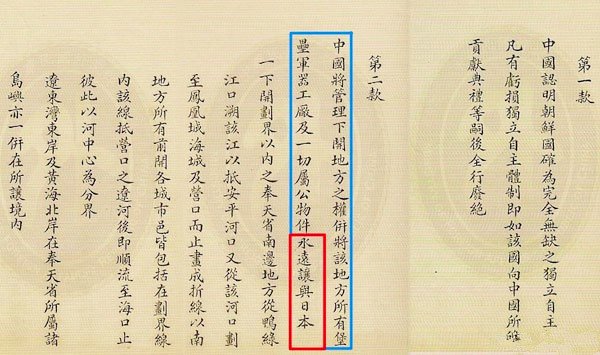 第一款
中國認明朝鮮國確為完全無缺之獨立自主
凡有虧損獨立自主體制即如該國向中國所修
貢獻典禮等嗣後全行廢絕
第二款
中國將管理下開地方之權併將該地方所有堡
壘軍器工廠及一切屬公物件永遠讓與日本
一下開劃界以內之奉天省南邊地方從鴨綠
江口溯該江以抵安平河口又從該河口劃
至鳳凰城海城及營口而止畫成折線以南
地方所有前開各城市邑皆包括在劃界線
內該線抵營口之遼河後即順流至海口止
彼此以河中心為分界
遼東灣東岸及黃海北岸在奉天省所屬諸
島嶼亦一併在所讓境內